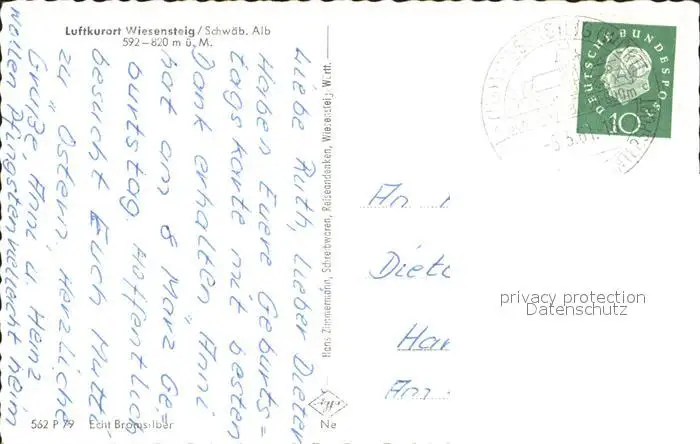 Luftkurort Wiesensteig / Schwäb. Alb
592–820 m ü. M.
Liebe Ruth, lieber Dieter
Haben Euere Geburts=
tagskarte mit besten
Dank erhalten Anni
hat am 8 März Ge=
burtstag. Hoffentlich
besucht Euch Mutti
zu Ostern, Herzliche
Grüße, Anni u. Heinz
wollen Pfingsten vielleicht heim
Hans Zimmermann, Schreibwaren, Reiseandenken, Wiesensteig, Württ.
562 P 79 Echt Bromsilber
Ne
DEUTSCHE BUNDESPOST
10
An
Diet
Han
privacy protection
Datenschutz